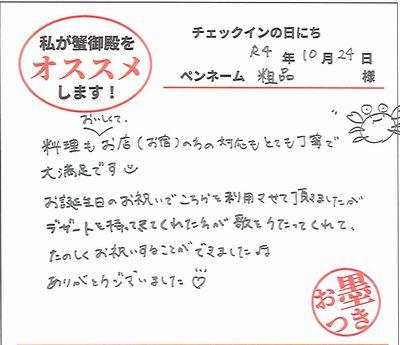 私が蟹御殿を
オススメ
します！
チェックインの日にち
R4年10月24日
ペンネーム 粗品 様
おいしくて、
料理もお店(お宿)の方の対応もとても丁寧で
大満足です
お誕生日のお祝いでこちらを利用させて頂きましたが
デザートを持ってきてくれた方が歌をうたってくれて、
たのしくお祝いすることができました♫
ありがとうございました♡
お墨つき